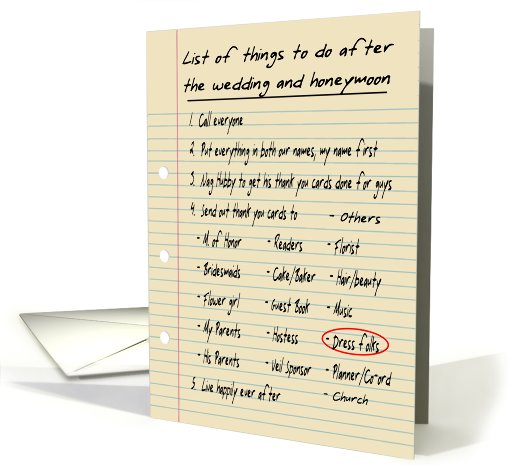 List of things to do after
the wedding and honeymoon
1. Call everyone
2. Put everything in both our names, my name first
3. Nag Hubby to get his thank you cards done for guys
4. Send out thank you cards to - Others
- M. of Honor - Readers - Florist
- Bridesmaids - Cake/Baker - Hair/beauty
- Flower girl - Guest Book - Music
- My Parents - Hostess - Dress folks
- His Parents - Veil Sponsor - Planner/Co-ord
5. Live happily ever after - Church